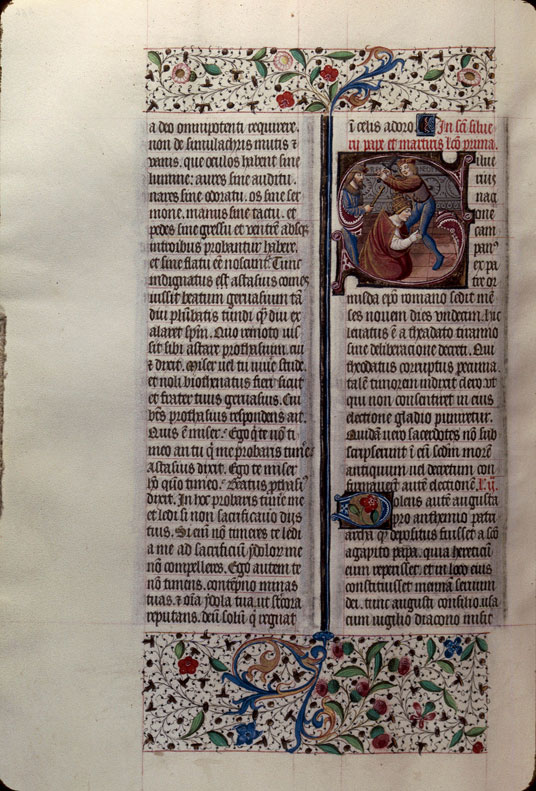 a deo omnipotenti requirere.
non de simulachris mutis ⁊
vanis. que oculos habent sine
lumine: aures sine auditu.
nares sine odoratu. os sine ser
mone. manus sine tactu. et
pedes sine gressu et ventrē absq3
introibus probantur habere.
et sine flatu eē noscunt. Tunc
indignatus est astasius comes
iussit beatum gervasium tā
diu plūbatis tundi q̄ diu ex
alaret spm̄. Quo remoto ius
sit sibi astare prothasium. cui
⁊ dixit. Miser vel tu viue stude.
et noli biothenatus fieri sicut
et frater tuus gervasius. Cui
btūs prothasius respondens ait.
Quis ē miser. Ego q̄ te nō ti
meo an tu q̄ me probaris timeˀe
astasius dixit. Ego te miser
hō quō timeo. Beatus pthasiˀ
dixit. In hoc probaris timeˀe me
et ledi si non sacrificavero diis
tuis. Si enī nō timeres te ledi
a me ad sacrificiū ydolor me
nō compelleres. Ego autem te
nō timens. contēpno minas
tuas. ⁊ oīa ydola tua ut stˀcora
reputans. deū solū q̄ regnat
ī celis adoro. In scī silue
rii pape et martiris lcō prima.
Silue
rius
nag
one
cam
panˀ
ex pa
tre or
misda epō romano sedit mē
ses novem dies undecim. hic
levatus ē a theadato tiranno
sine deliberacione decreti. Qui
theodatus corruptus pecunia
talē timorem indixit clero vt
qui non consentiret in eius
electione gladio puniretur.
Quidā vero sacerdotes nō sub
scripserunt ī eū scdm morē
antiquum vel decretum con
firmaverūt autē electionē. l. ij.
Dolens autē augusta
pro anthemio patri
archa q̄ depositus fuisset a scō
agapito papa. quia hereticū
eum reperisset. et in loco eius
constituisset mennam servum
dei. tunc augusti consilio. usa
cum vigilio diacono misit